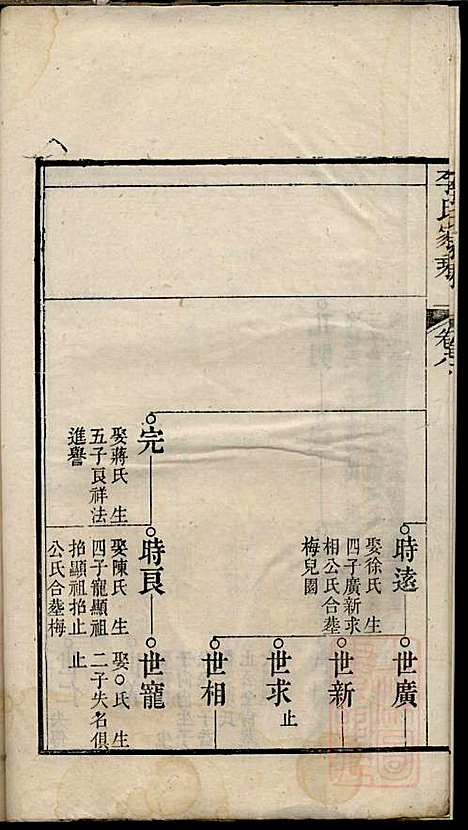 李氏家乘
卷之八
時遠
娶徐氏 生
四子廣新求
相公氏合塟
梅兒園
世廣
世新
世求
止
世相
完
娶蔣氏 生
五子良祥法
進譽
時良
娶陳氏 生
四子寵顯祖
拾顯祖拾止
公氏合塟梅
世寵
娶○氏 生
二子失名俱
止